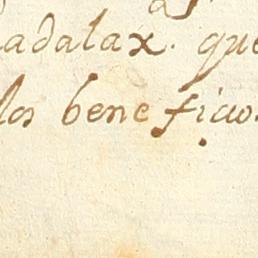 adalax. que
los beneficios.